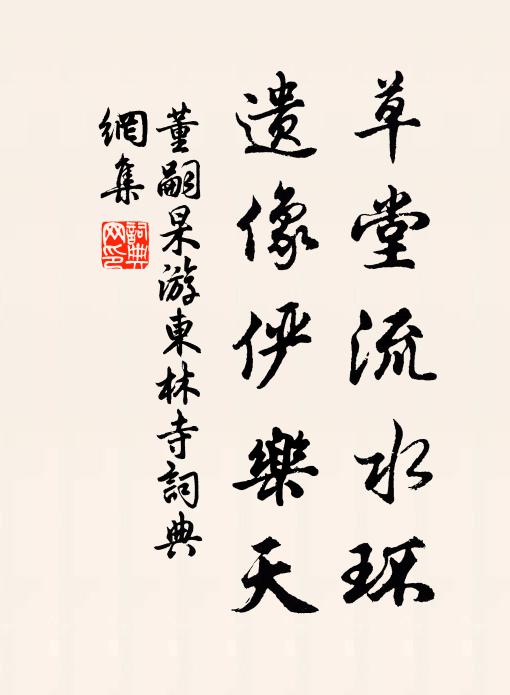 草堂流水环
遗像俨樂天
董嗣杲游東林寺詞典
網集
詞典網印